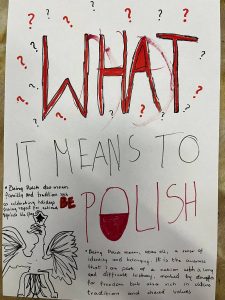 ? ? ? ? ? ?
WHAT
IT MEANS TO
BE
POLISH
• Being Polish also mean
family and tradition such
as celebrating holidays
• Being Polish means, above all, a sense of
identity and belonging. It is the awareness
that I am part of a nation with a long
and difficult history, marked by struggles
for freedom but also rich in culture
traditions and shared values